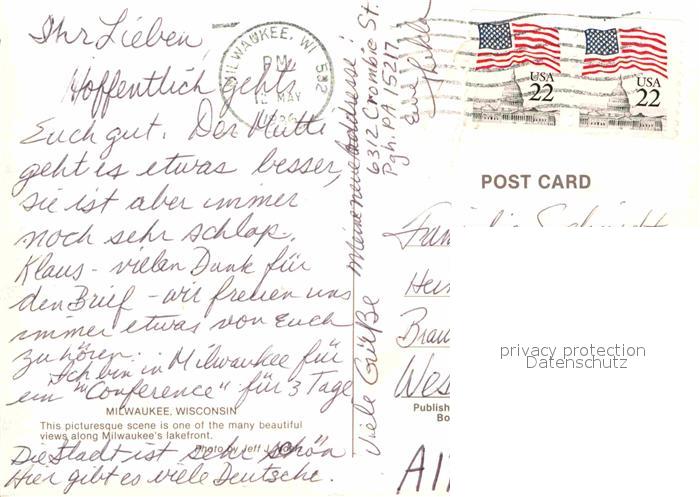 Ihr Lieben,
Hoffentlich gehts
Euch gut. Der Mutti
geht es etwas besser,
sie ist aber immer
noch sehr schlap.
Klaus - vielen Dank für
den Brief - wir freuen uns
immer etwas von Euch
zu hören.
Ich bin in Milwaukee für
ein "Conference" für 3 Tage
MILWAUKEE, WISCONSIN
This picturesque scene is one of the many beautiful
views along Milwaukee's lakefront.
Photo by Jeff J.
Die Stadt ist sehr schön
Hier gibt es viele Deutsche.
Viele Grüße
Eure
Meine neue Addresse!
6312 Crombie St.
Pgh. PA 15217
MILWAUKEE, WI 532
PM
12 MAY
USA
22
USA
22
POST CARD
Publish
Bo
privacy protection
Datenschutz